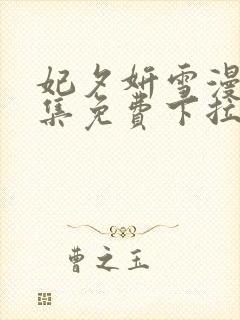 妃夕妍雪漫
集免費下拉
曹之玉